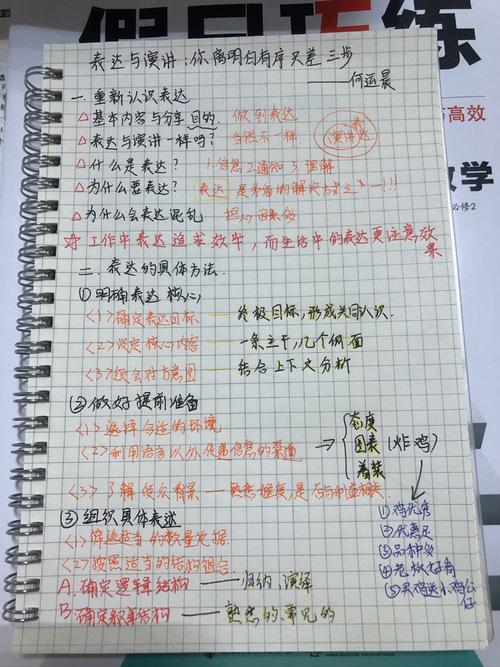 假日巧练
与高效
数学
必修2
表达与演讲：你离明白有序只差三步
——何运晨
一、重新认识表达
△基本内容与分享目的. 做到表达
△表达与演讲一样吗？ 当然不一样. 演讲 表达
△什么是表达？ 1.信息 2.通知 3.理解
△为什么要表达？ 表达 是矛盾的解决方式之一!!!
△为什么会表达混乱 担心因素多
☆工作中表达追求效率，而生活中的表达更注意效果
二、表达的具体方法.
①明确表达核心
<1>确定表达目标——终极目标，形成共同认识.
<2>设定核心内容——一条主干，几个侧面
<3>领会对方意图——结合上下文分析
②做好提前准备
<1>选择合适的环境
<2>利用语言以外传递信息的渠道 → { 态度 图表 着装 (炸鸡)
<3>了解受众背景——熟悉程度，是否与利益相关
③组织具体表述
<1>筛选适当的数量数据
<2>按照适当的结构组合
A.确定逻辑结构——归纳、演绎
B.确定叙事结构——熟悉的、常见的
①鸡优质
②代言足
③品种多
④老板好看
⑤买鸡送小鸡公仔